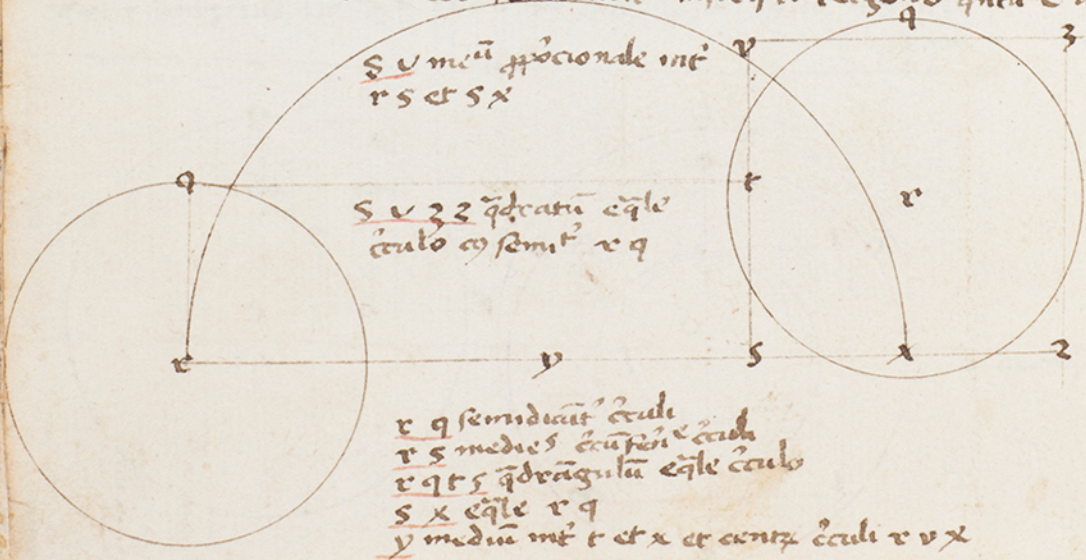 q
s v meū ꝓpˀcionale intˀ
v
3
r s et s x
q
t
s v 3 2 q̄dratū eq̄le
r
cˀculo cū semitˀ r q
r
y
s
x
2
r q semidiāetˀ cˀculi
r s medieˢ cˀcūferēᵉ cˀculi
r q t s q̄drāgulū eq̄le cˀculo
s x eq̄le r q
y mediū intˀ r et x et centꝝ cˀculi r v x